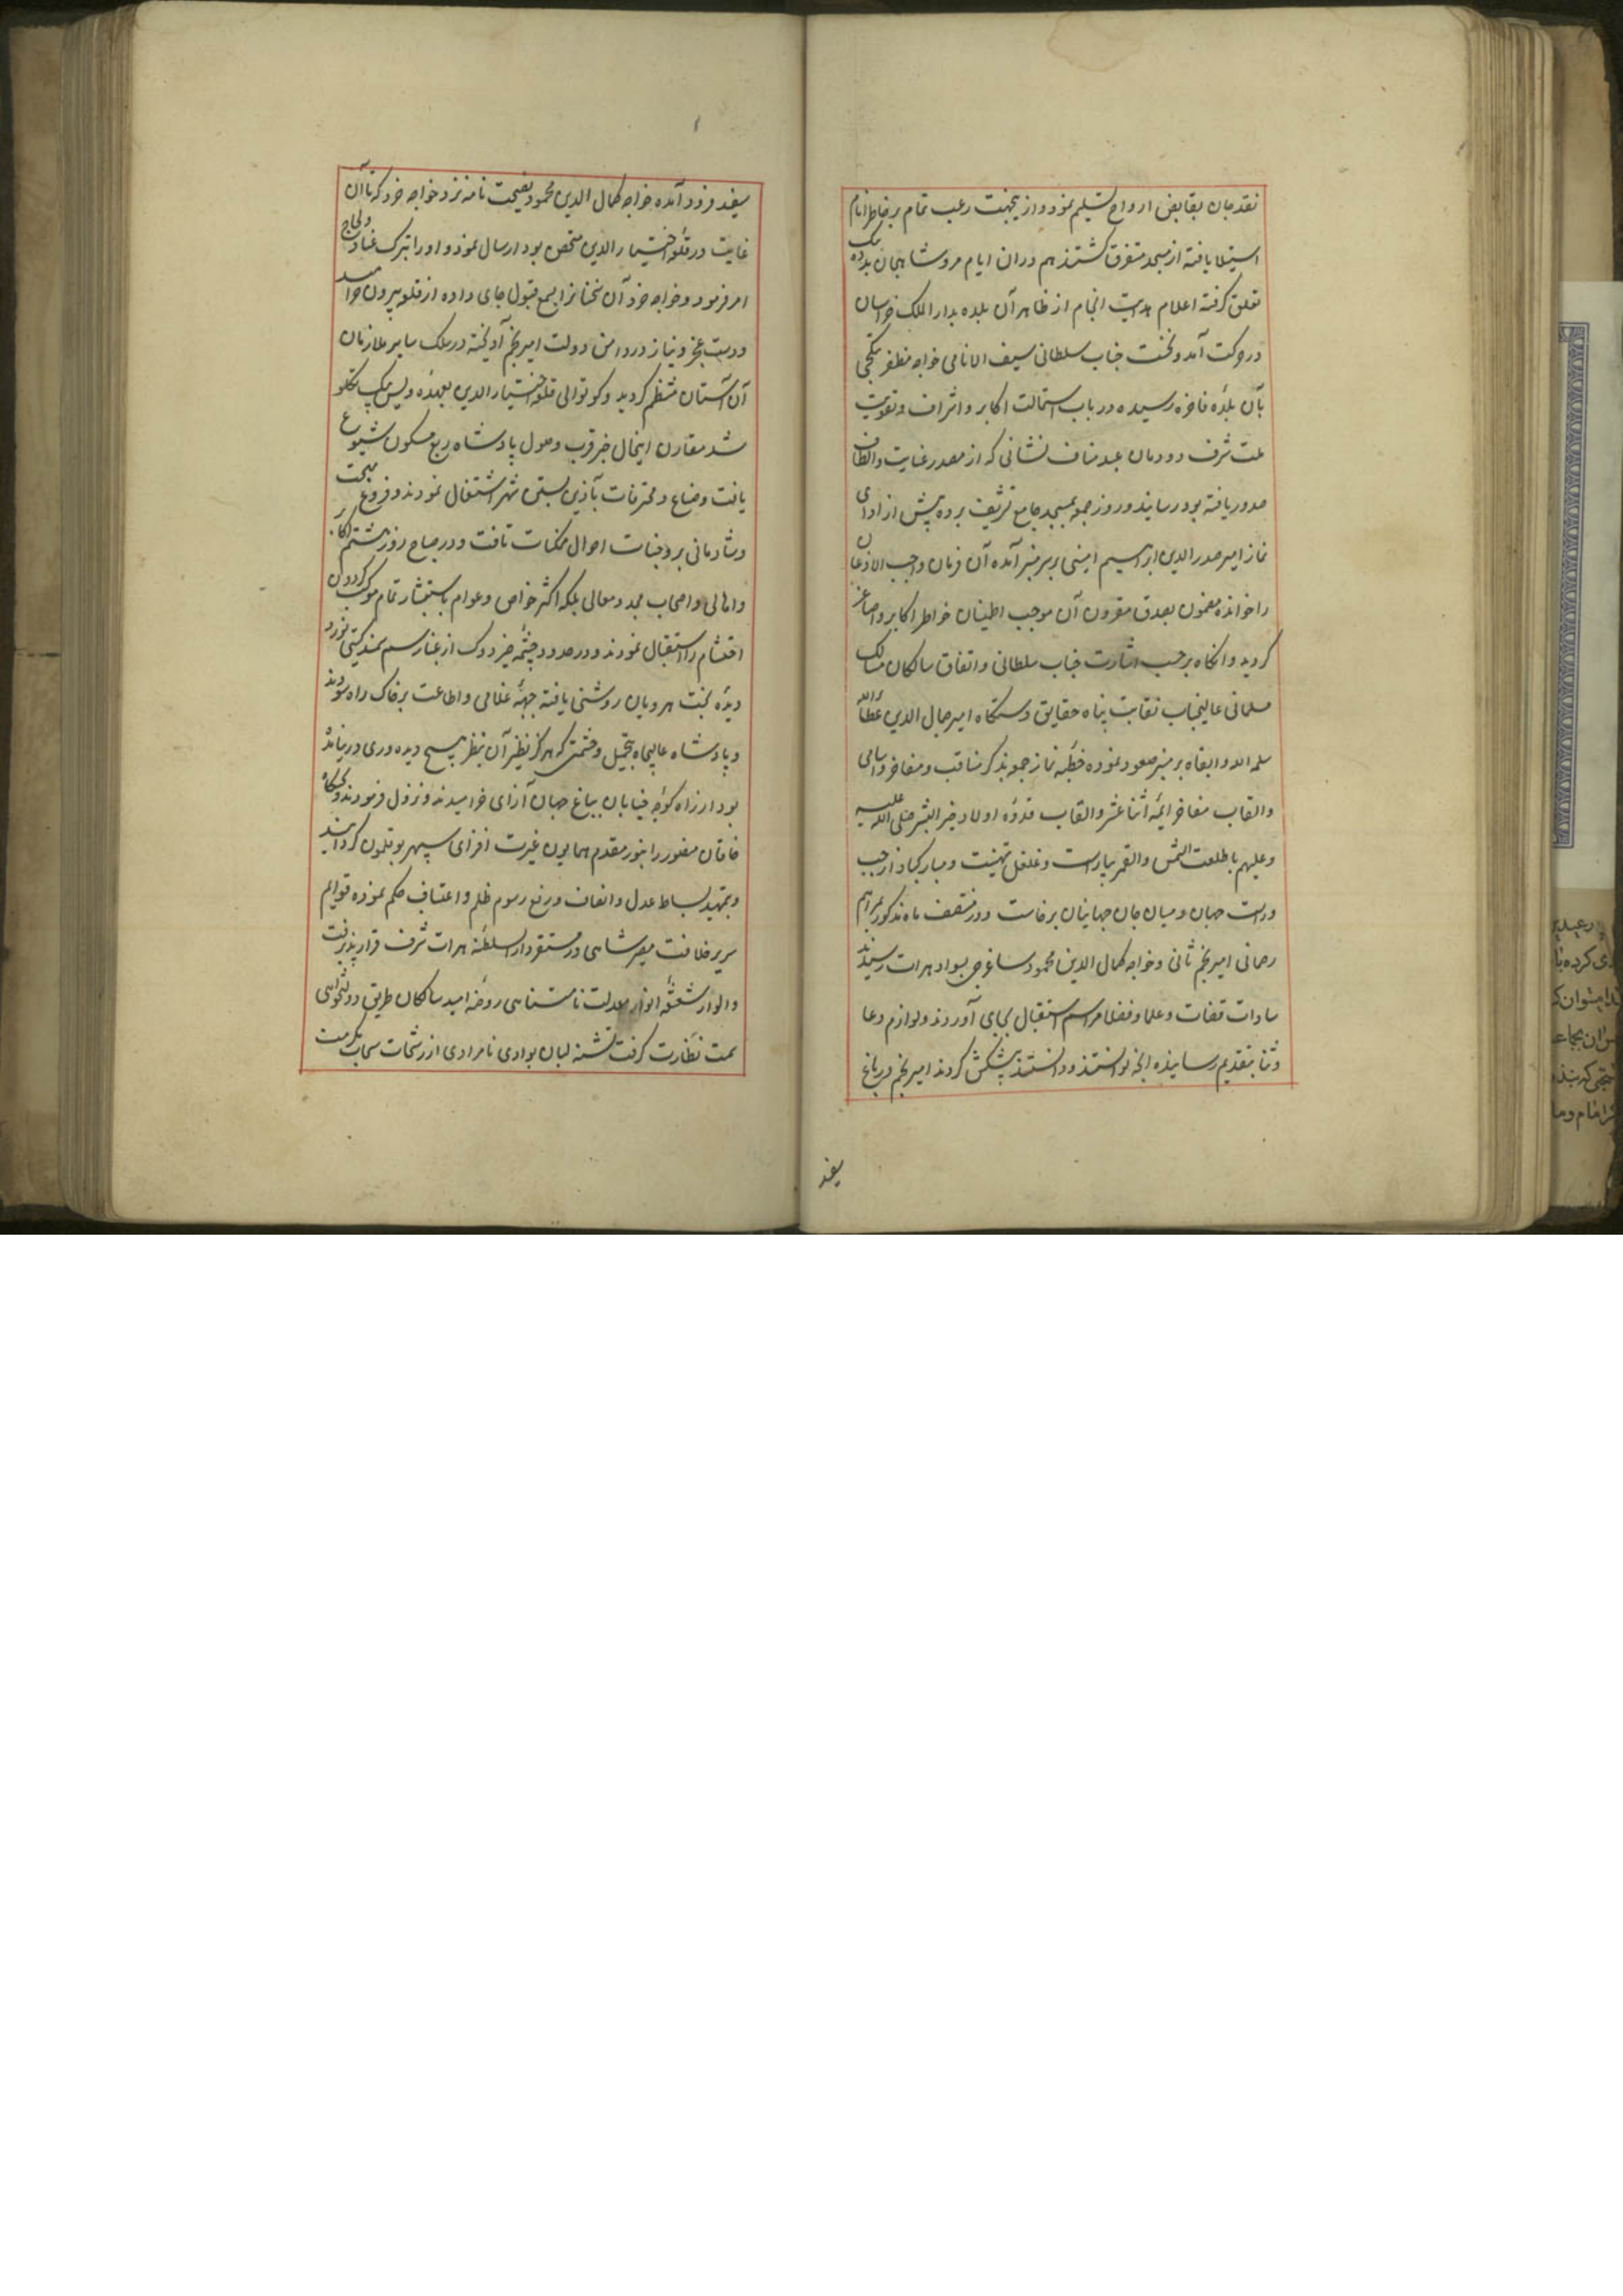 نقد جان بقابض ارواح تسلیم نمود و ازینجهت رعب تمام بر خاطر انام
استیلا یافته از مسجد متفرق گشتند هم دران ایام مرو شاهیجان بیک
تعلق گرفته اعلام هدایت انجام از ظاهر آن بلده بدار الملک خراسان
در حرکت آمد و نخست جناب سلطانی سیف الانامی خواجه مظفر بتکچی
بآن بلدهٔ فاخره رسیده در باب استمالت اکابر و اشراف و تقویت
ملت شرف دودمان عبد مناف نشانی که از مصدر عنایت و الطاف
صدور یافته بود رسانید و روز جمعه بمسجد جامع تشریف برده پیش از ادای
نماز امیر صدر الدین ابراهیم امینی بر سر منبر آمده آن فرمان واجب الاذعان
را خوانده مضمون بصدق مقرون آن موجب اطمینان خواطر اکابر و اصاغر
گردید و انگاه برحسب اشارت جناب سلطانی و اتفاق سالکان مسالک
مسلمانی عالیجناب نقابت پناه حقایق دستگاه امیر جمال الدین عطاء الله
سلمه الله و ابقاه بر منبر صعود نموده خطبه نماز جمعه بذکر مناقب و مفاخر و اسامی
و القاب مفاخر ایمه اثنا عشر و القاب قدوه اولاد خیر البشر صلی الله علیه
و علیهم با طلعت الشمس و القمر بیاراست و غلغل تهنیت و مبارکباد از چپ
و راست جهان و میان جان جهانیان برخاست و در منتصف ماه مذکور بمراهم
رحمانی امیر نجم ثانی و خواجه کمال الدین محمود ساغرجی بسواد هرات رسیدند
سادات قضات و علما و فضلا مراسم استقبال بجای آوردند و لوازم دعا
و ثنا بتقدیم رسانیده آنچه توانستند و دانستند پیشکش کردند امیر نجم در باغ
سفید
سفید فرود آمده خواجه کمال الدین محمود نصیحت نامه نزد خواجه خرد که تا آن
غایت در قلعه اختیار الدین متحصن بود ارسال نمود و او را بترک عناد و لجاج
امر فرمود و خواجه خرد آن سخنانرا بسمع قبول جای داده از قلعه بیرون خرامید
و دست عجز و نیاز در دامن دولت امیر نجم آویخته در سلک سایر ملازمان
آن آستان منتظم گردید و کوتوالی قلعه اختیار الدین بعهدهٔ ویس بیک تکلو
شد مقارن اینحال خبر قرب وصول پادشاه ربع مسکون شیوع
یافت و صناع و محترفات بآذین بستن شهر اشتغال نمودند و فروغ بهجت
و شادمانی بر وجنات احوال ممکنات تافت و در صباح روز بیستم اکابر
و اهالی و اصحاب مجد و معالی بلکه اکثر خواص و عوام باستبشار تمام موکب گردون
احتشام را استقبال نمودند و در حدود چشمه خیر دوک از غبار سم سمند گیتی نورد
دیدهٔ بخت هرویان روشنی یافته جبههٔ غلامی و اطاعت بر خاک راه سودند
و پادشاه عالیجاه بتجمل و حشمتی که هرگز نظیر آن بنظر هیچ دیده وری درنیامده
بود از راه کوچه خیابان بباغ جهان آرای خرامیدند و نزول فرمودند و لحکاه
خاقان منصور را بنور مقدم همایون غیرت افزای سپهر بوقلمون گردانید
و بتمهید بساط عدل و انصاف و رفع رسوم ظلم و اعتساف حکم نموده قوایم
سریر خلافت مصیر شاهی در مستقر دار السلطنه هرات شرف قرار پذیرفت
و از اشعهٔ انوار معدلت نامتناهی روضه امید سالکان طریق دولتخواهی
سمت نضارت گرفت تشنه لبان بوادی نامرادی از رشحات سحاب مکرمت